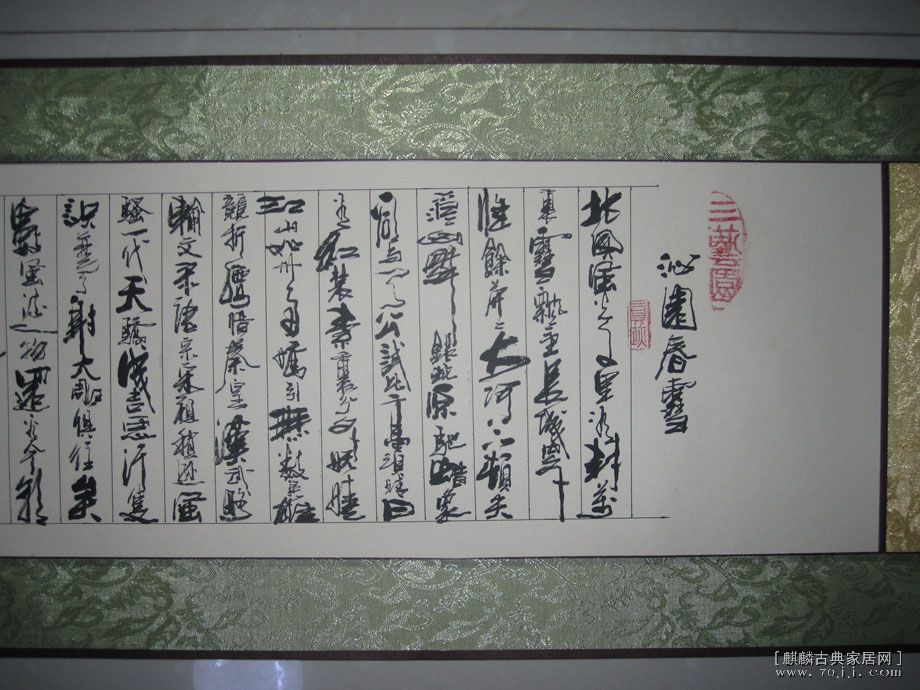 三藝園
沁園春雪
北國風光千里冰封萬
里雪飄望長城內外
惟餘莽莽大河上下頓失
滔滔山舞銀蛇原馳蠟象
欲與天公試比高須晴日
看紅裝素裹分外妖嬈
江山如此多嬌引無數英雄
競折腰惜秦皇漢武略
輸文采唐宗宋祖稍遜風
騷一代天驕成吉思汗隻
識彎弓射大雕俱往矣
數風流人物還看今朝
[麒麟古典家居网]
www.70jj.com